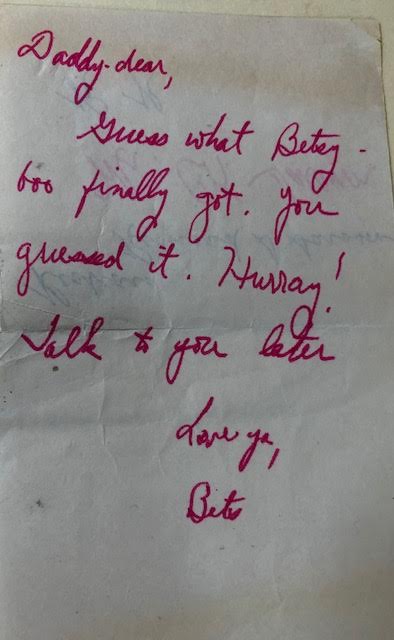 Daddy-dear,
Guess what Betsy-
boo finally got. You
guessed it. Hurray!
Talk to you later
Love ya,
Bets